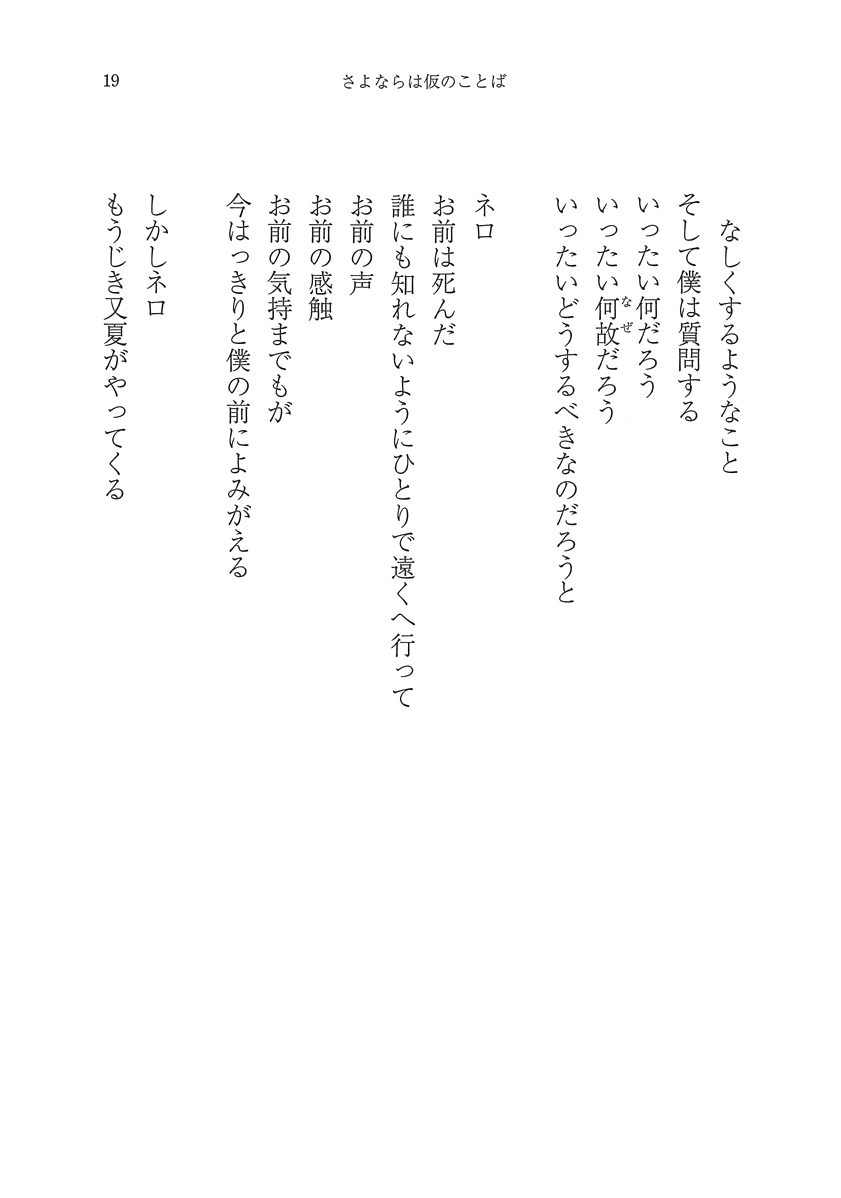 19
さよならは仮のことば
なしくするようなこと
そして僕は質問する
いったい何だろう
いったい何故だろう
なぜ
いったいどうするべきなのだろうと
ネロ
お前は死んだ
誰にも知れないようにひとりで遠くへ行って
お前の声
お前の感触
お前の気持までもが
今はっきりと僕の前によみがえる
しかしネロ
もうじき又夏がやってくる